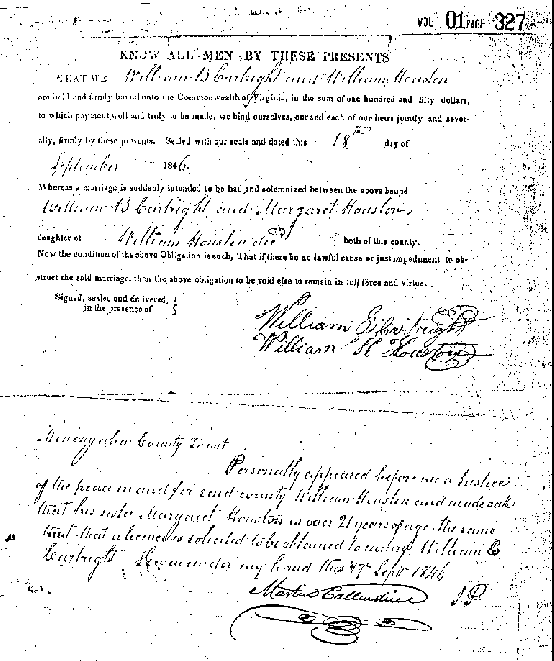 VOL 01 PAGE 327
KNOW ALL MEN BY THESE PRESENTS
THAT WE William B Cartright and William Houston
are held and firmly bound unto the Commonwealth of Virginia, in the sum of one hundred and fifty dollars,
to which payment well and truly to be made, we bind ourselves, our and each of our heirs jointly and sever-
ally, firmly by these presents. Sealed with our seals and dated this 18th day of
September 1846.
Whereas a marriage is suddenly intended to be had and solemnized between the above bound
William B Cartright and Margaret Houston
daughter of William Houston decd both of this county.
Now the condition of the above Obligation is such, That if there be no lawful cause or just impediment to ob-
struct the said marriage, then the above obligation to be void else to remain in full force and virtue.
Signed, sealed and delivered,
in the presence of
William
William H Houston
County
Personally appeared before me a Justice
of the peace in and for said county William Houston and made oath
that his sister Margaret Houston is over 21 years of age the same
that a license is solicited to be obtained to marry William
Cartright under my hand this Sept 1846
JP